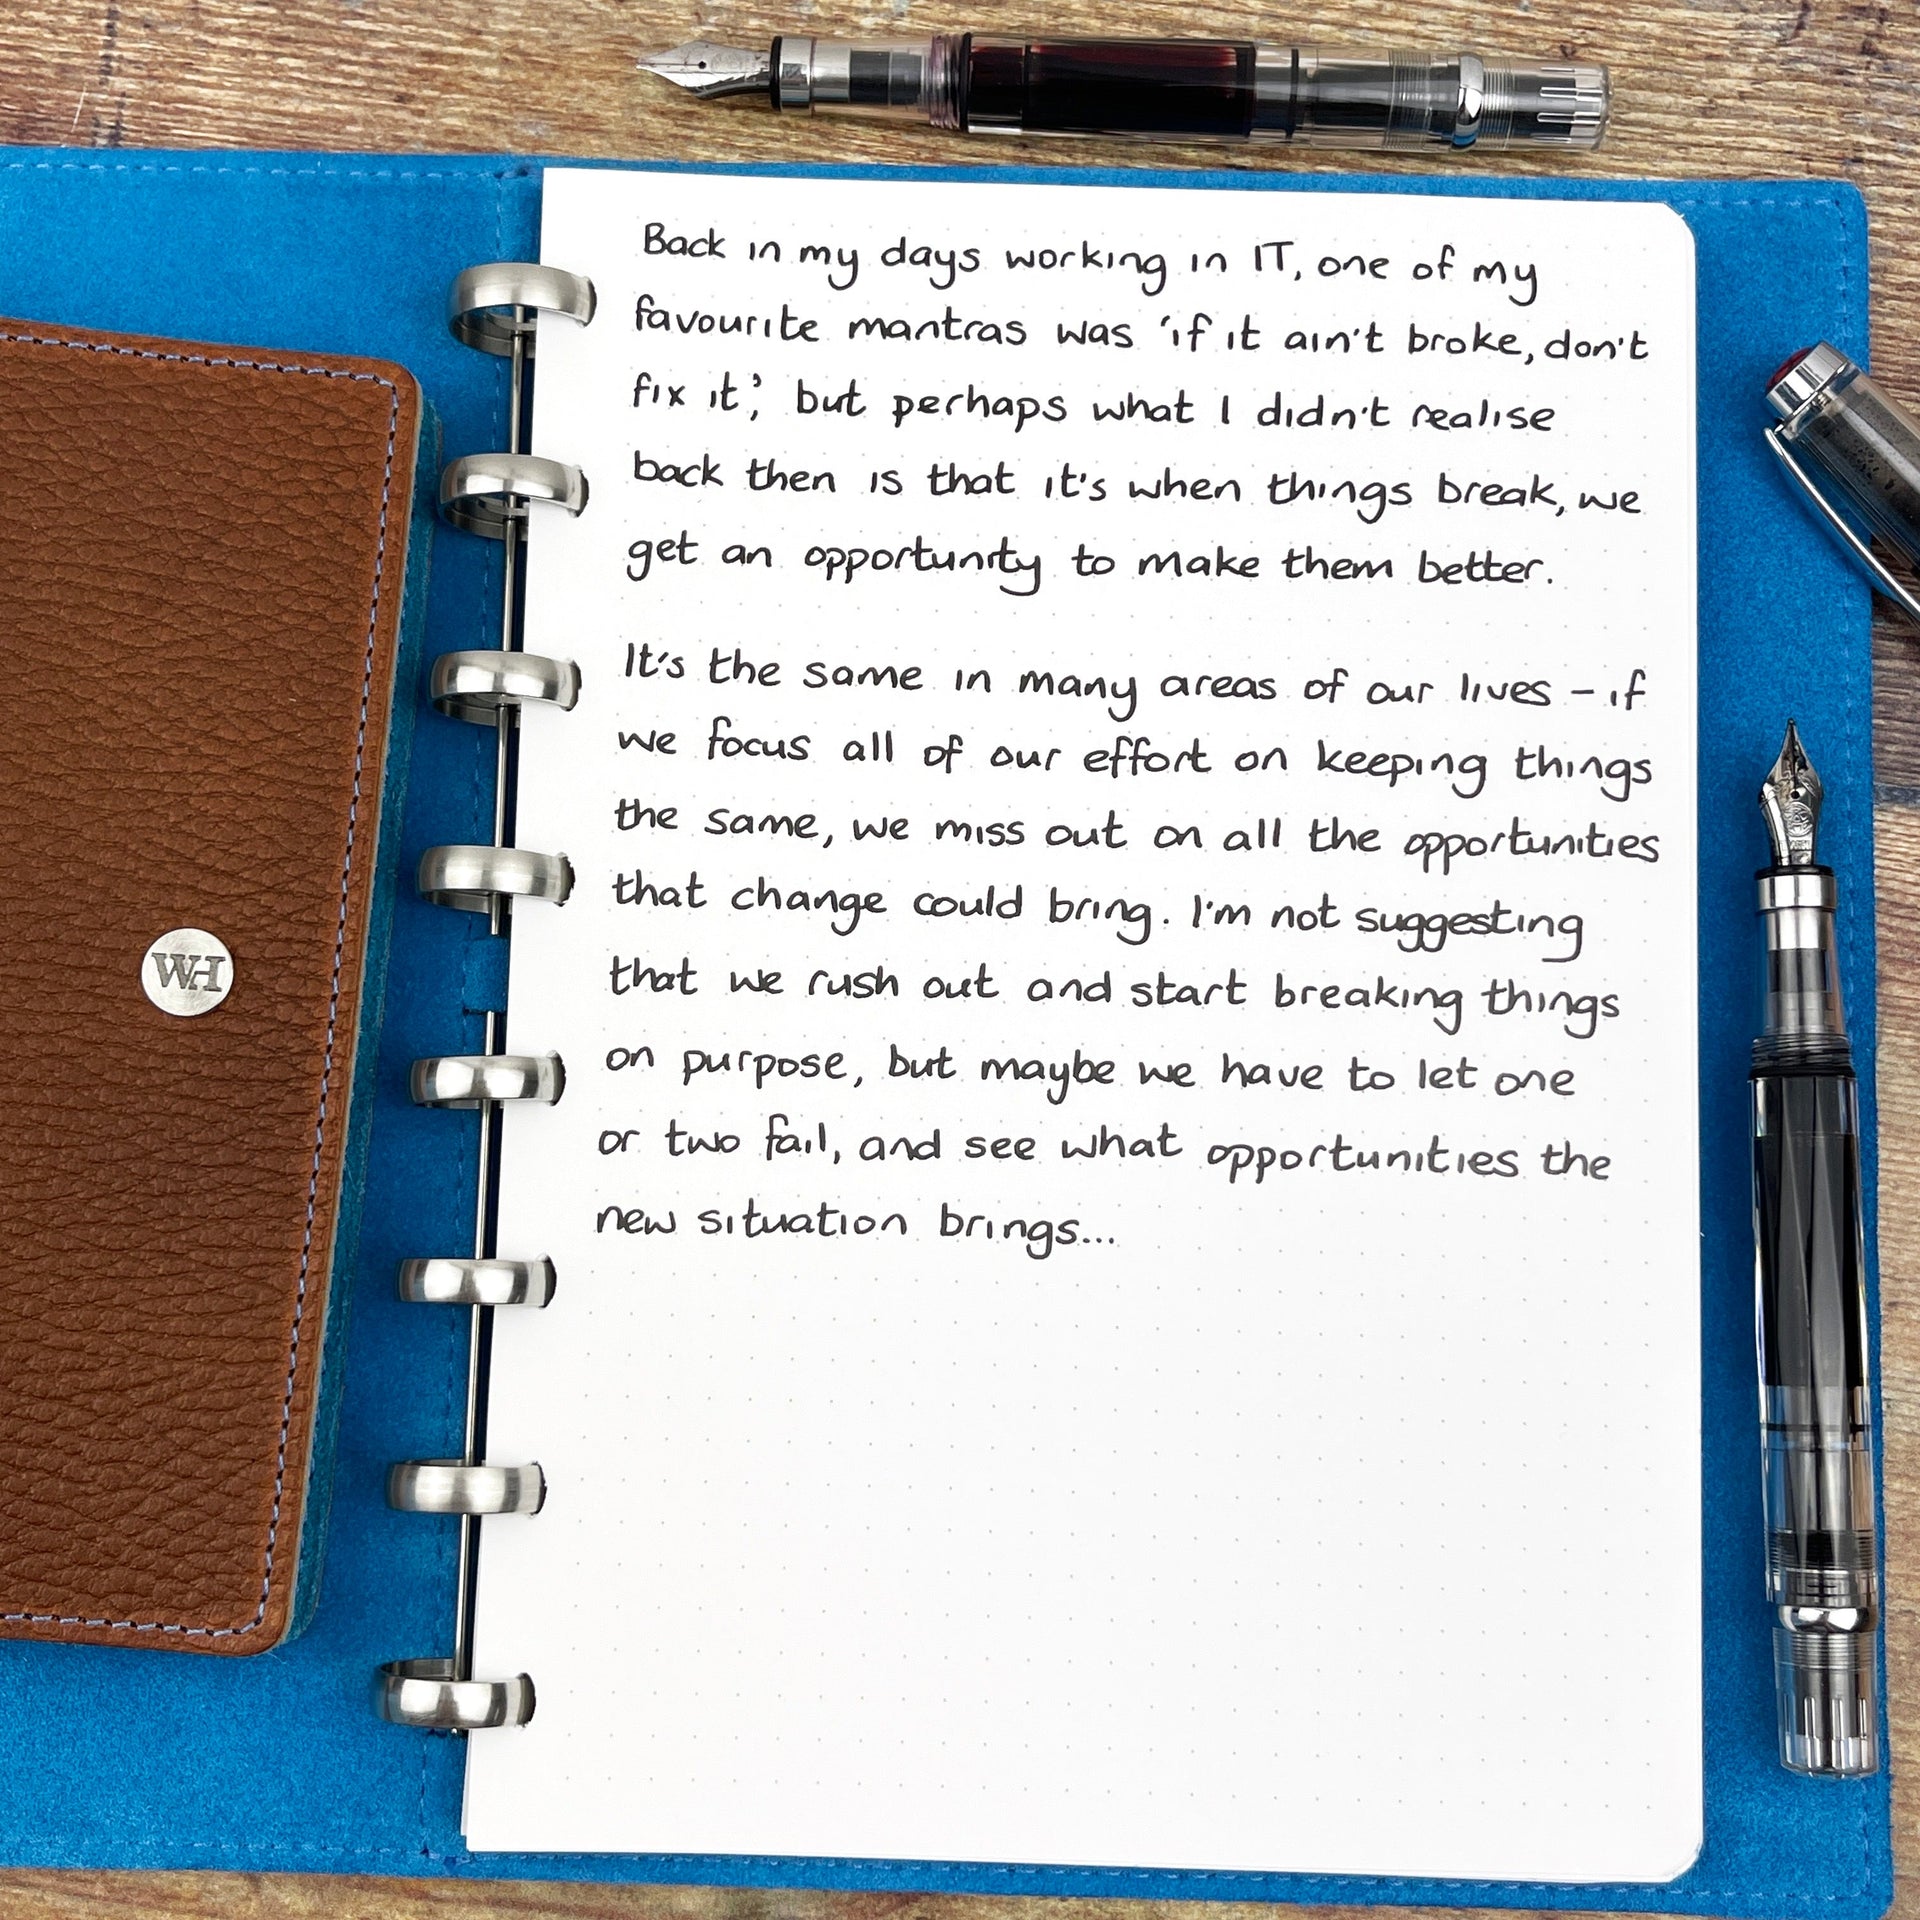 Back in my days working in IT, one of my
favourite mantras was 'if it ain't broke, don't
fix it', but perhaps what I didn't realise
back then is that it's when things break, we
get an opportunity to make them better.
It's the same in many areas of our lives – if
we focus all of our effort on keeping things
the same, we miss out on all the opportunities
that change could bring. I'm not suggesting
that we rush out and start breaking things
on purpose, but maybe we have to let one
or two fail, and see what opportunities the
new situation brings...
WH